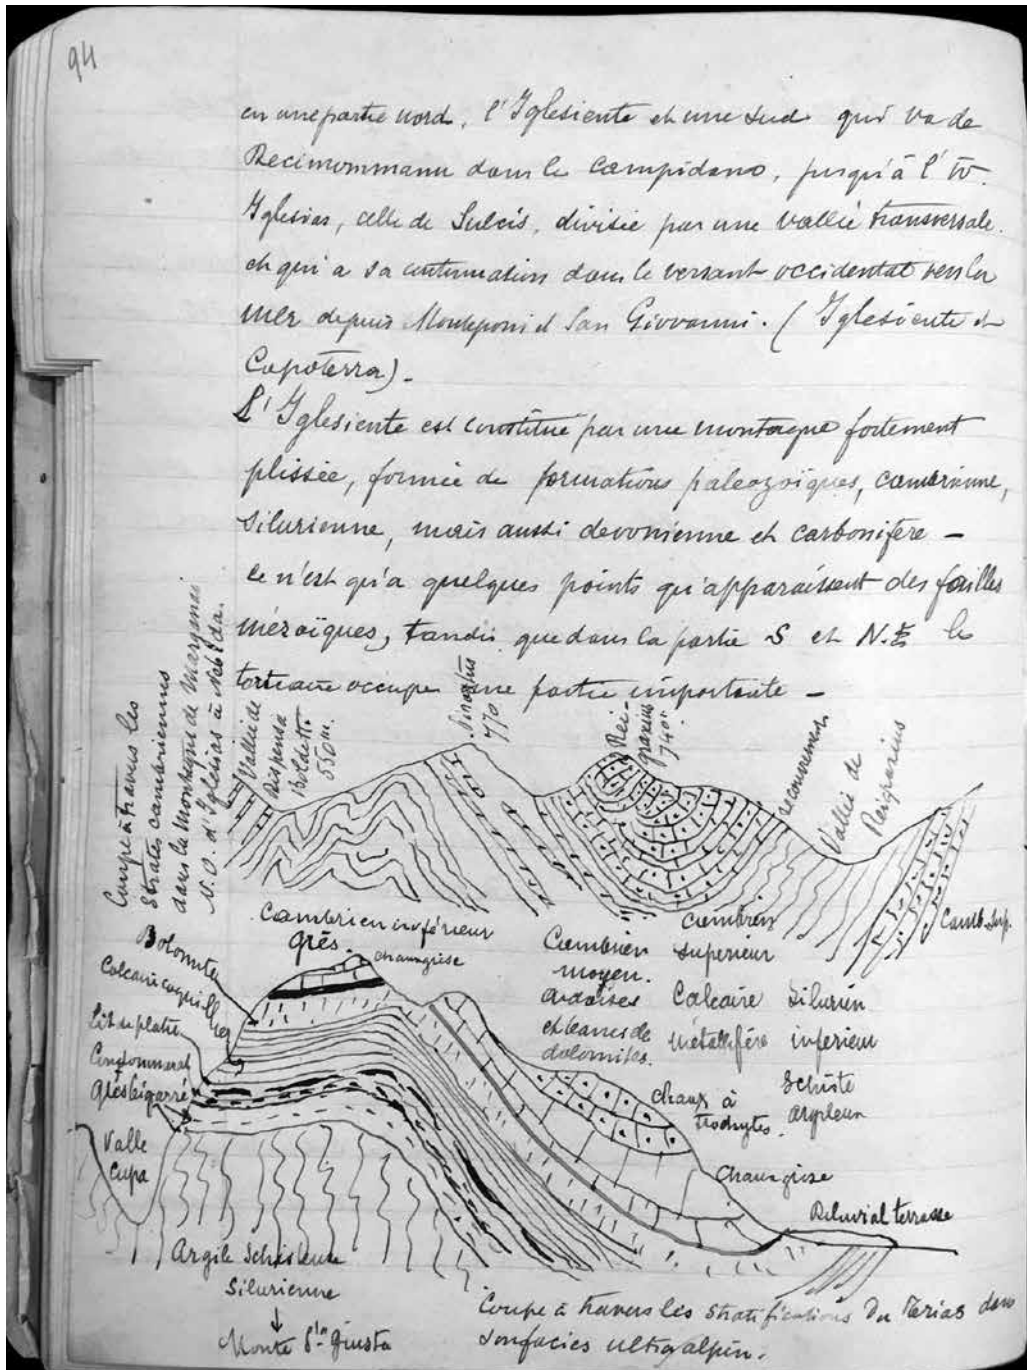 94
en une partie nord, l'Iglesiente et une sud qui va de
Decimommanu dans le Campidano, jusqu'à l'W.
Iglesias, celle de Sulcis, divisée par une vallée transversale.
et qui a sa continuation dans le versant occidental vers la
mer depuis Monteponi et San Giovanni. (Iglesiente et
Capoterra).
L'Iglesiente est constitué par une montagne fortement
plissée, formée de formations paleozoïques, cambrienne,
silurienne, mais aussi devonienne et carbonifère -
ce n'est qu'a quelques points qu'apparaissent des failles
mézoïques, tandis que dans la partie S et N.E le
tertiaire occupe une partie importante -
Coupe à travers les
Strates cambriennes
dans la Montagne de Marganai
N.O. d'Iglésias à Nebida.
Vallée de
Dispensa
Boldetti.
550 m.
770
Rei-
graxius
740m.
recouvrement
Vallée de
Reigraxius
Cambrien inférieur
Grés.
Cambrien
moyen.
ardoises
et bancs de
dolomites.
Cambrien
superieur
Calcaire
métallifére
Silurien
inferieur
Schiste
argileux
Camb. sup.
Dolomites
Calcaire coquillier
Lit de platre
Conglommerat
Grés bigarré
Valle
Cupa
chaux grise
Chaux à
trochytes.
Chaux grise
Deluvial terrasse
Argile Schisteuse
Silurienne
↓
Monte Sta Giusta
Coupe à travers les stratifications du Terias dans
son facies ultralpin.